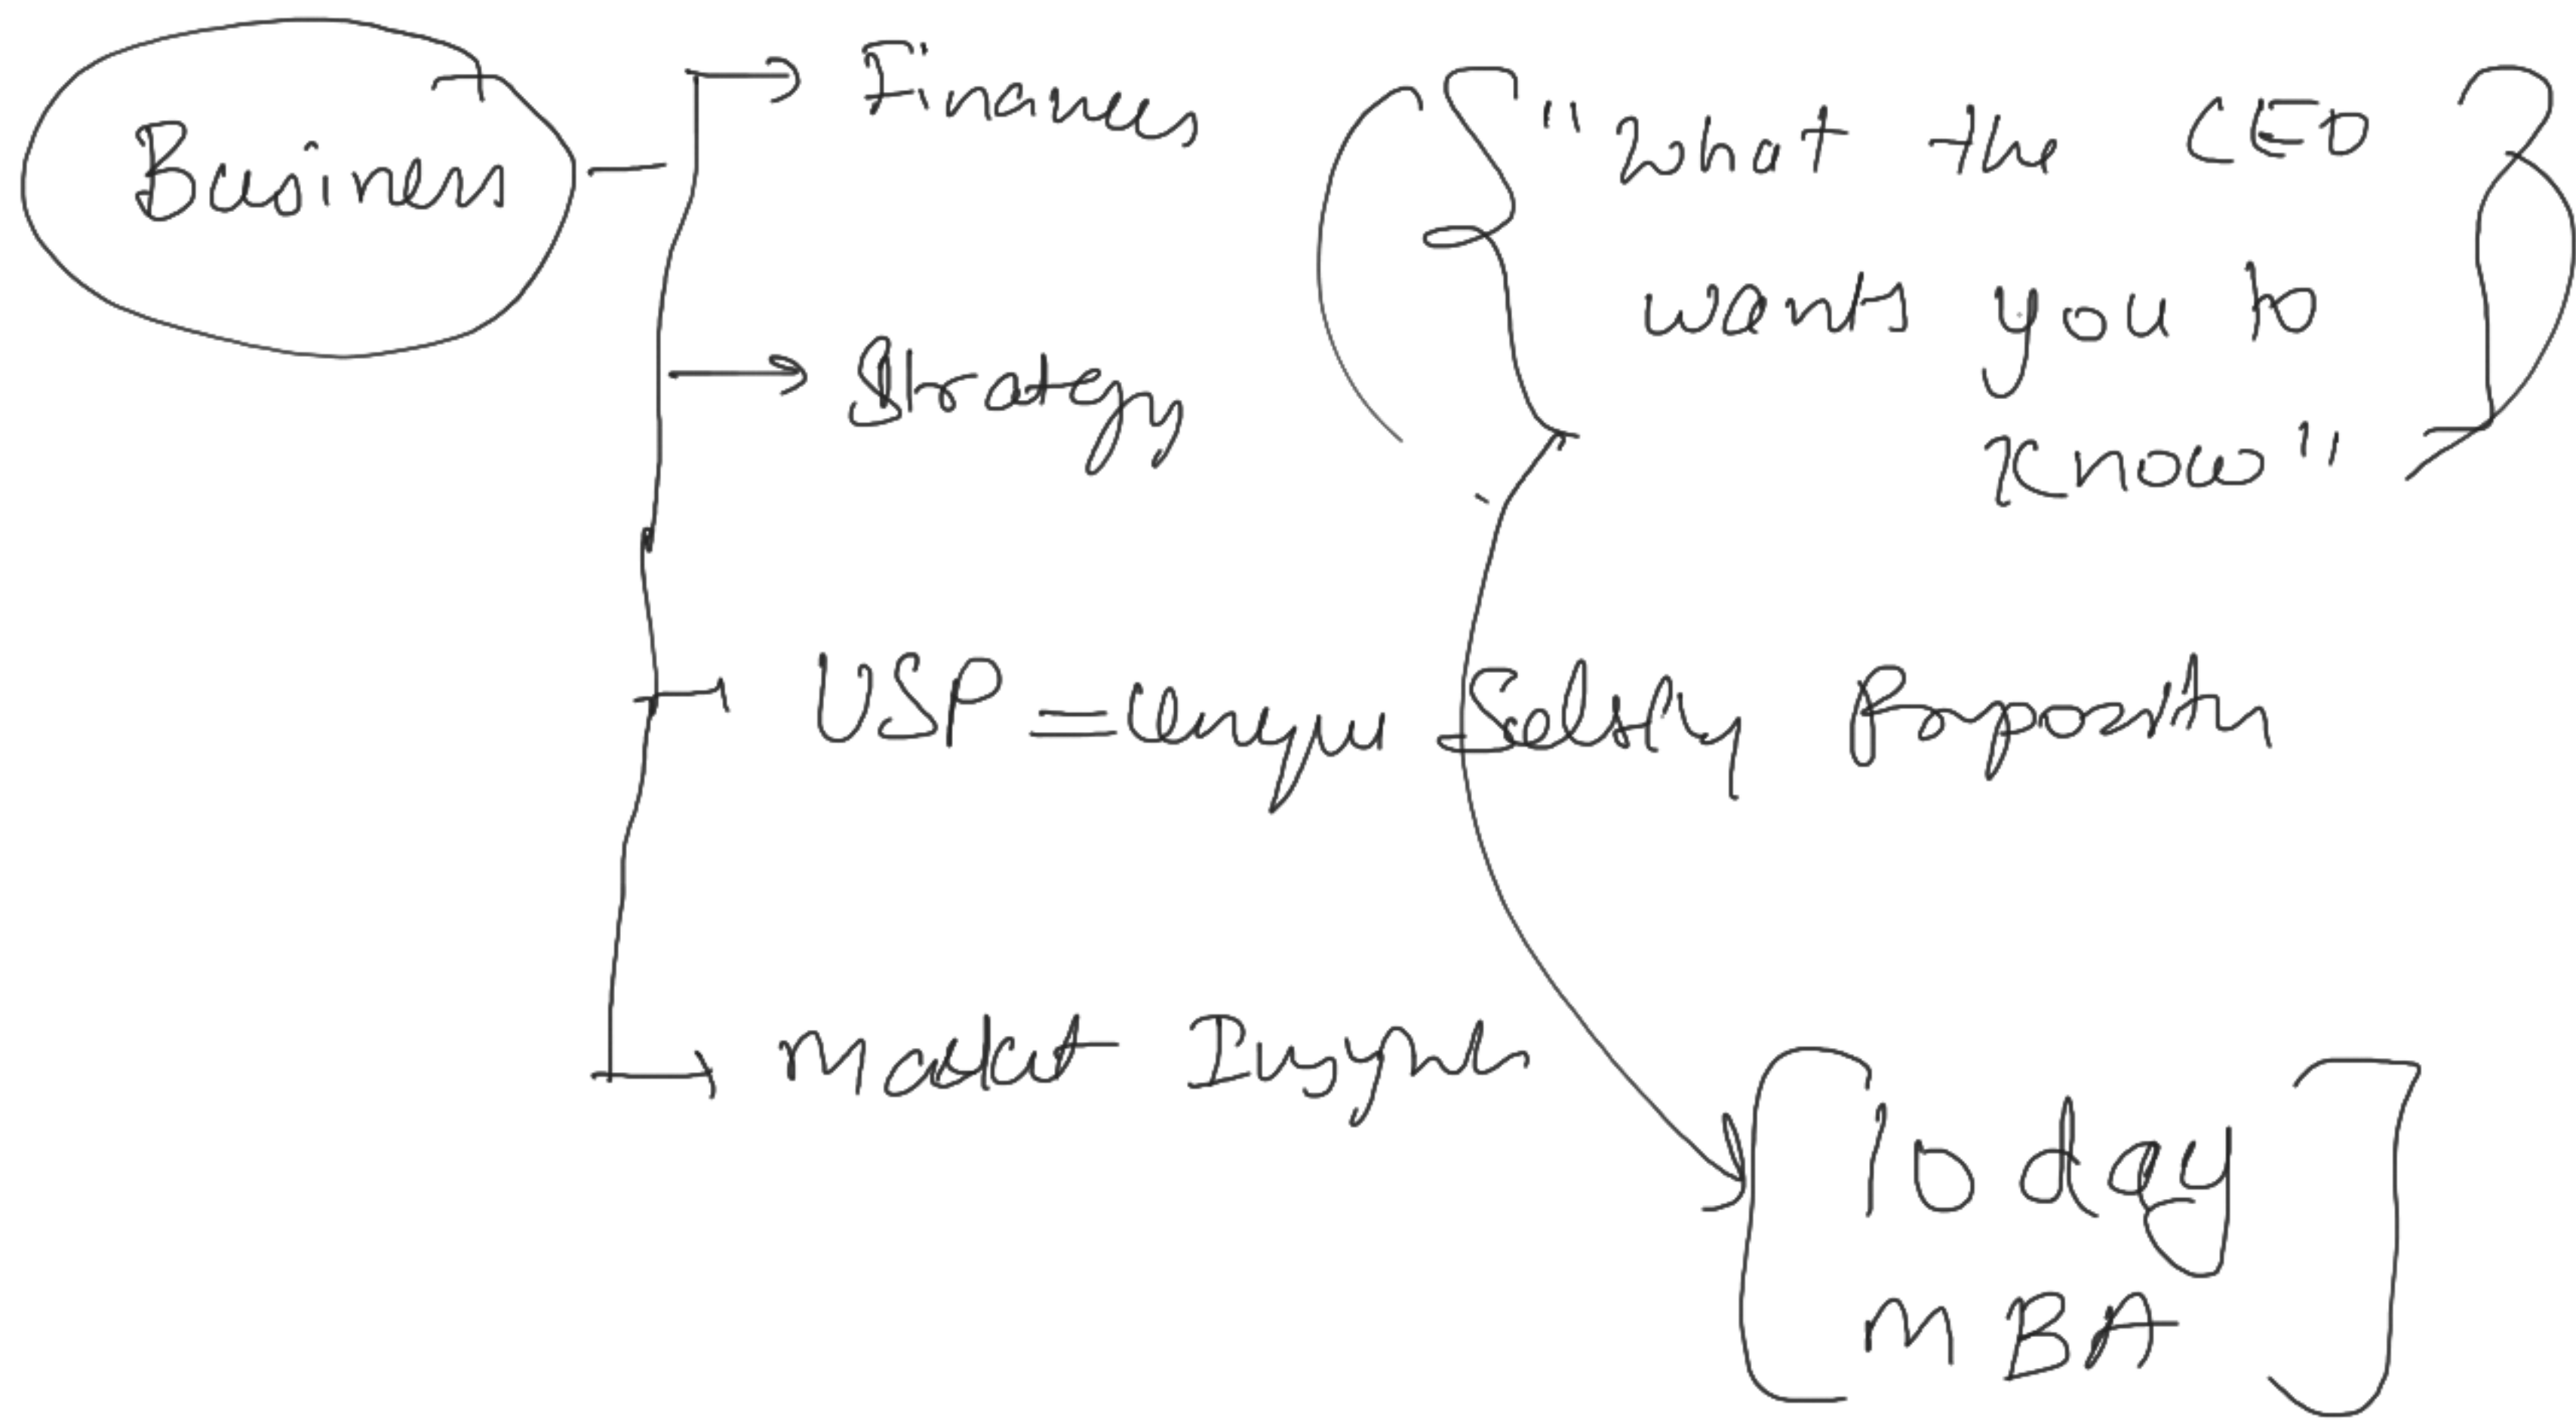 Business
Finances
Strategy
USP = Unique Selling Proposition
Market Insight
"What the CEO
wants you to
Know"
10 day
MBA